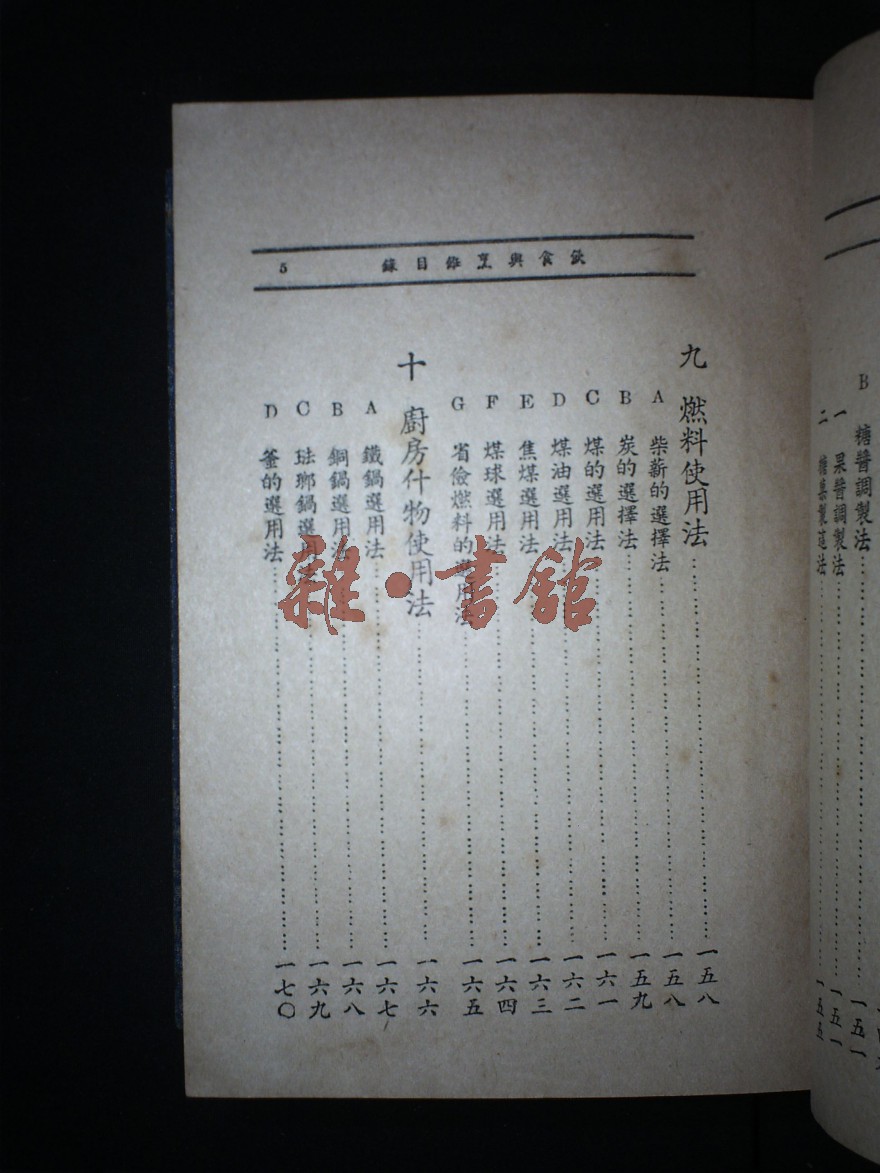 飲食與烹飪目錄 5
九 燃料使用法……一五八
A 柴薪的選擇法……一五八
B 炭的選擇法……一五九
C 煤的選用法……一六一
D 煤油選用法……一六二
E 焦煤選用法……一六三
F 煤球選用法……一六四
G 省儉燃料的選用法……一六五
十 廚房什物使用法……一六六
A 鐵鍋選用法……一六七
B 銅鍋選用法……一六八
C 琺瑯鍋選用法……一六九
D 釜的選用法……一七〇
雜·書館
B 糖醬調製法……一五一
一 果醬調製法……一五一
二 糖菓製造法……一五五